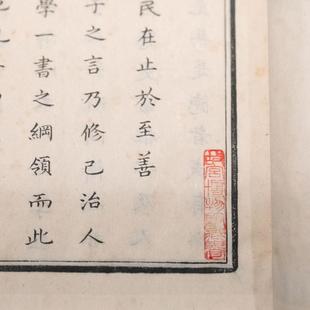 民在止於至善
子之言乃修己治人
學一書之綱領而此